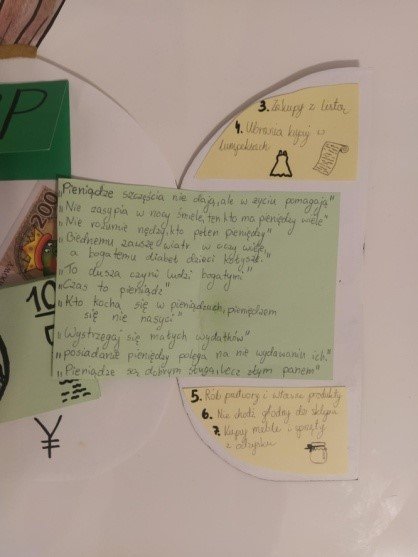 P
200
10
¥
3. Zakupy z listą
4. Ubrania kupuj w
lumpeksach
„Pieniądze szczęścia nie dają, ale w życiu pomagają”
„Nie zasypia w nocy śmiele, ten kto ma pieniędzy wiele”
„Nie rozumie nędzy, kto pełen pieniędzy”
„Biednemu zawsze wiatr w oczy wieje,
a bogatemu diabeł dzieci kołysze.”
„To dusza czyni ludzi bogatymi”
„Czas to pieniądz”
„Kto kocha się w pieniądzach, pieniędzem
się nie nasyci”
„Wystrzegaj się małych wydatków”
„posiadanie pieniędzy polega na nie wydawaniu ich.”
„Pieniądze są dobrym sługą, lecz złym panem”
5. Rób przetwory i własne produkty
6. Nie chodź głodny do sklepu
7. Kupuj meble i sprzęty
z odzysku